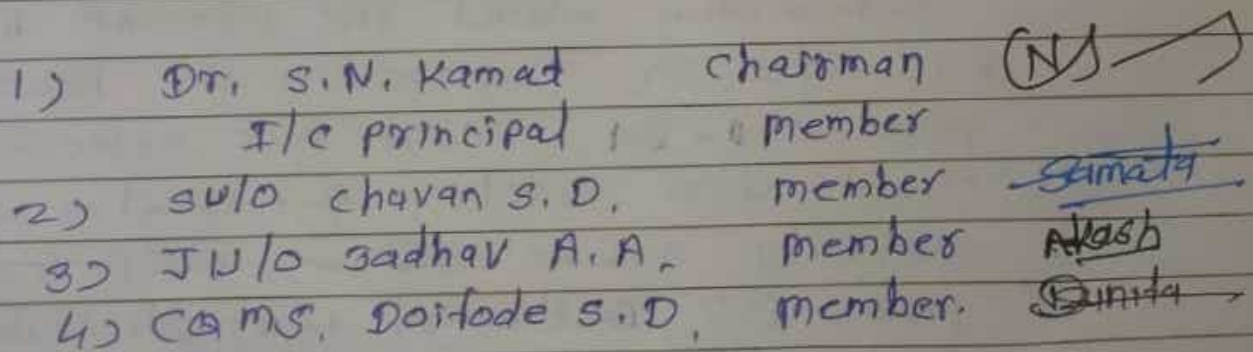 1) Dr. S. N. Kamat chairman
I/c principal member
2) SU/O chavan S. D. member Samata
3) JU/O Jadhav A. A. member Akash
4) CQMS. Doifode S. D. member. Sunita